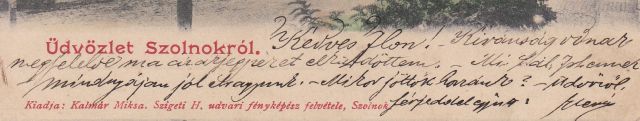 Üdvözlet Szolnokról. Kedves Ilon! - Kivánságodnak
megfelelve ma az arjegyzéket elküldöttem. - Mi Hál' Istennek
mindnyájan jól vagyunk. - Mikor jöttök haza? - Üdvözöl
Kiadja: Kalmár Miksa. Szigeti H. udvari fényképész felvétele, Szolnok. férjeddel együtt: